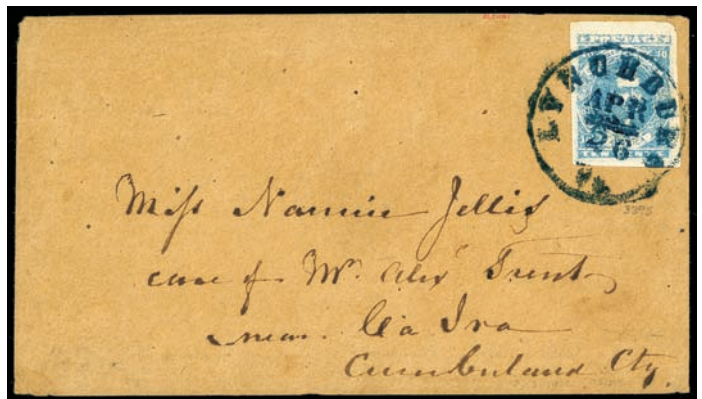 LYNCHBURG
APR
26
Va
3395
Miss Nannie Jellis
care of Mr. Alex Trent
near Ca Ira
Cumberland Cty.